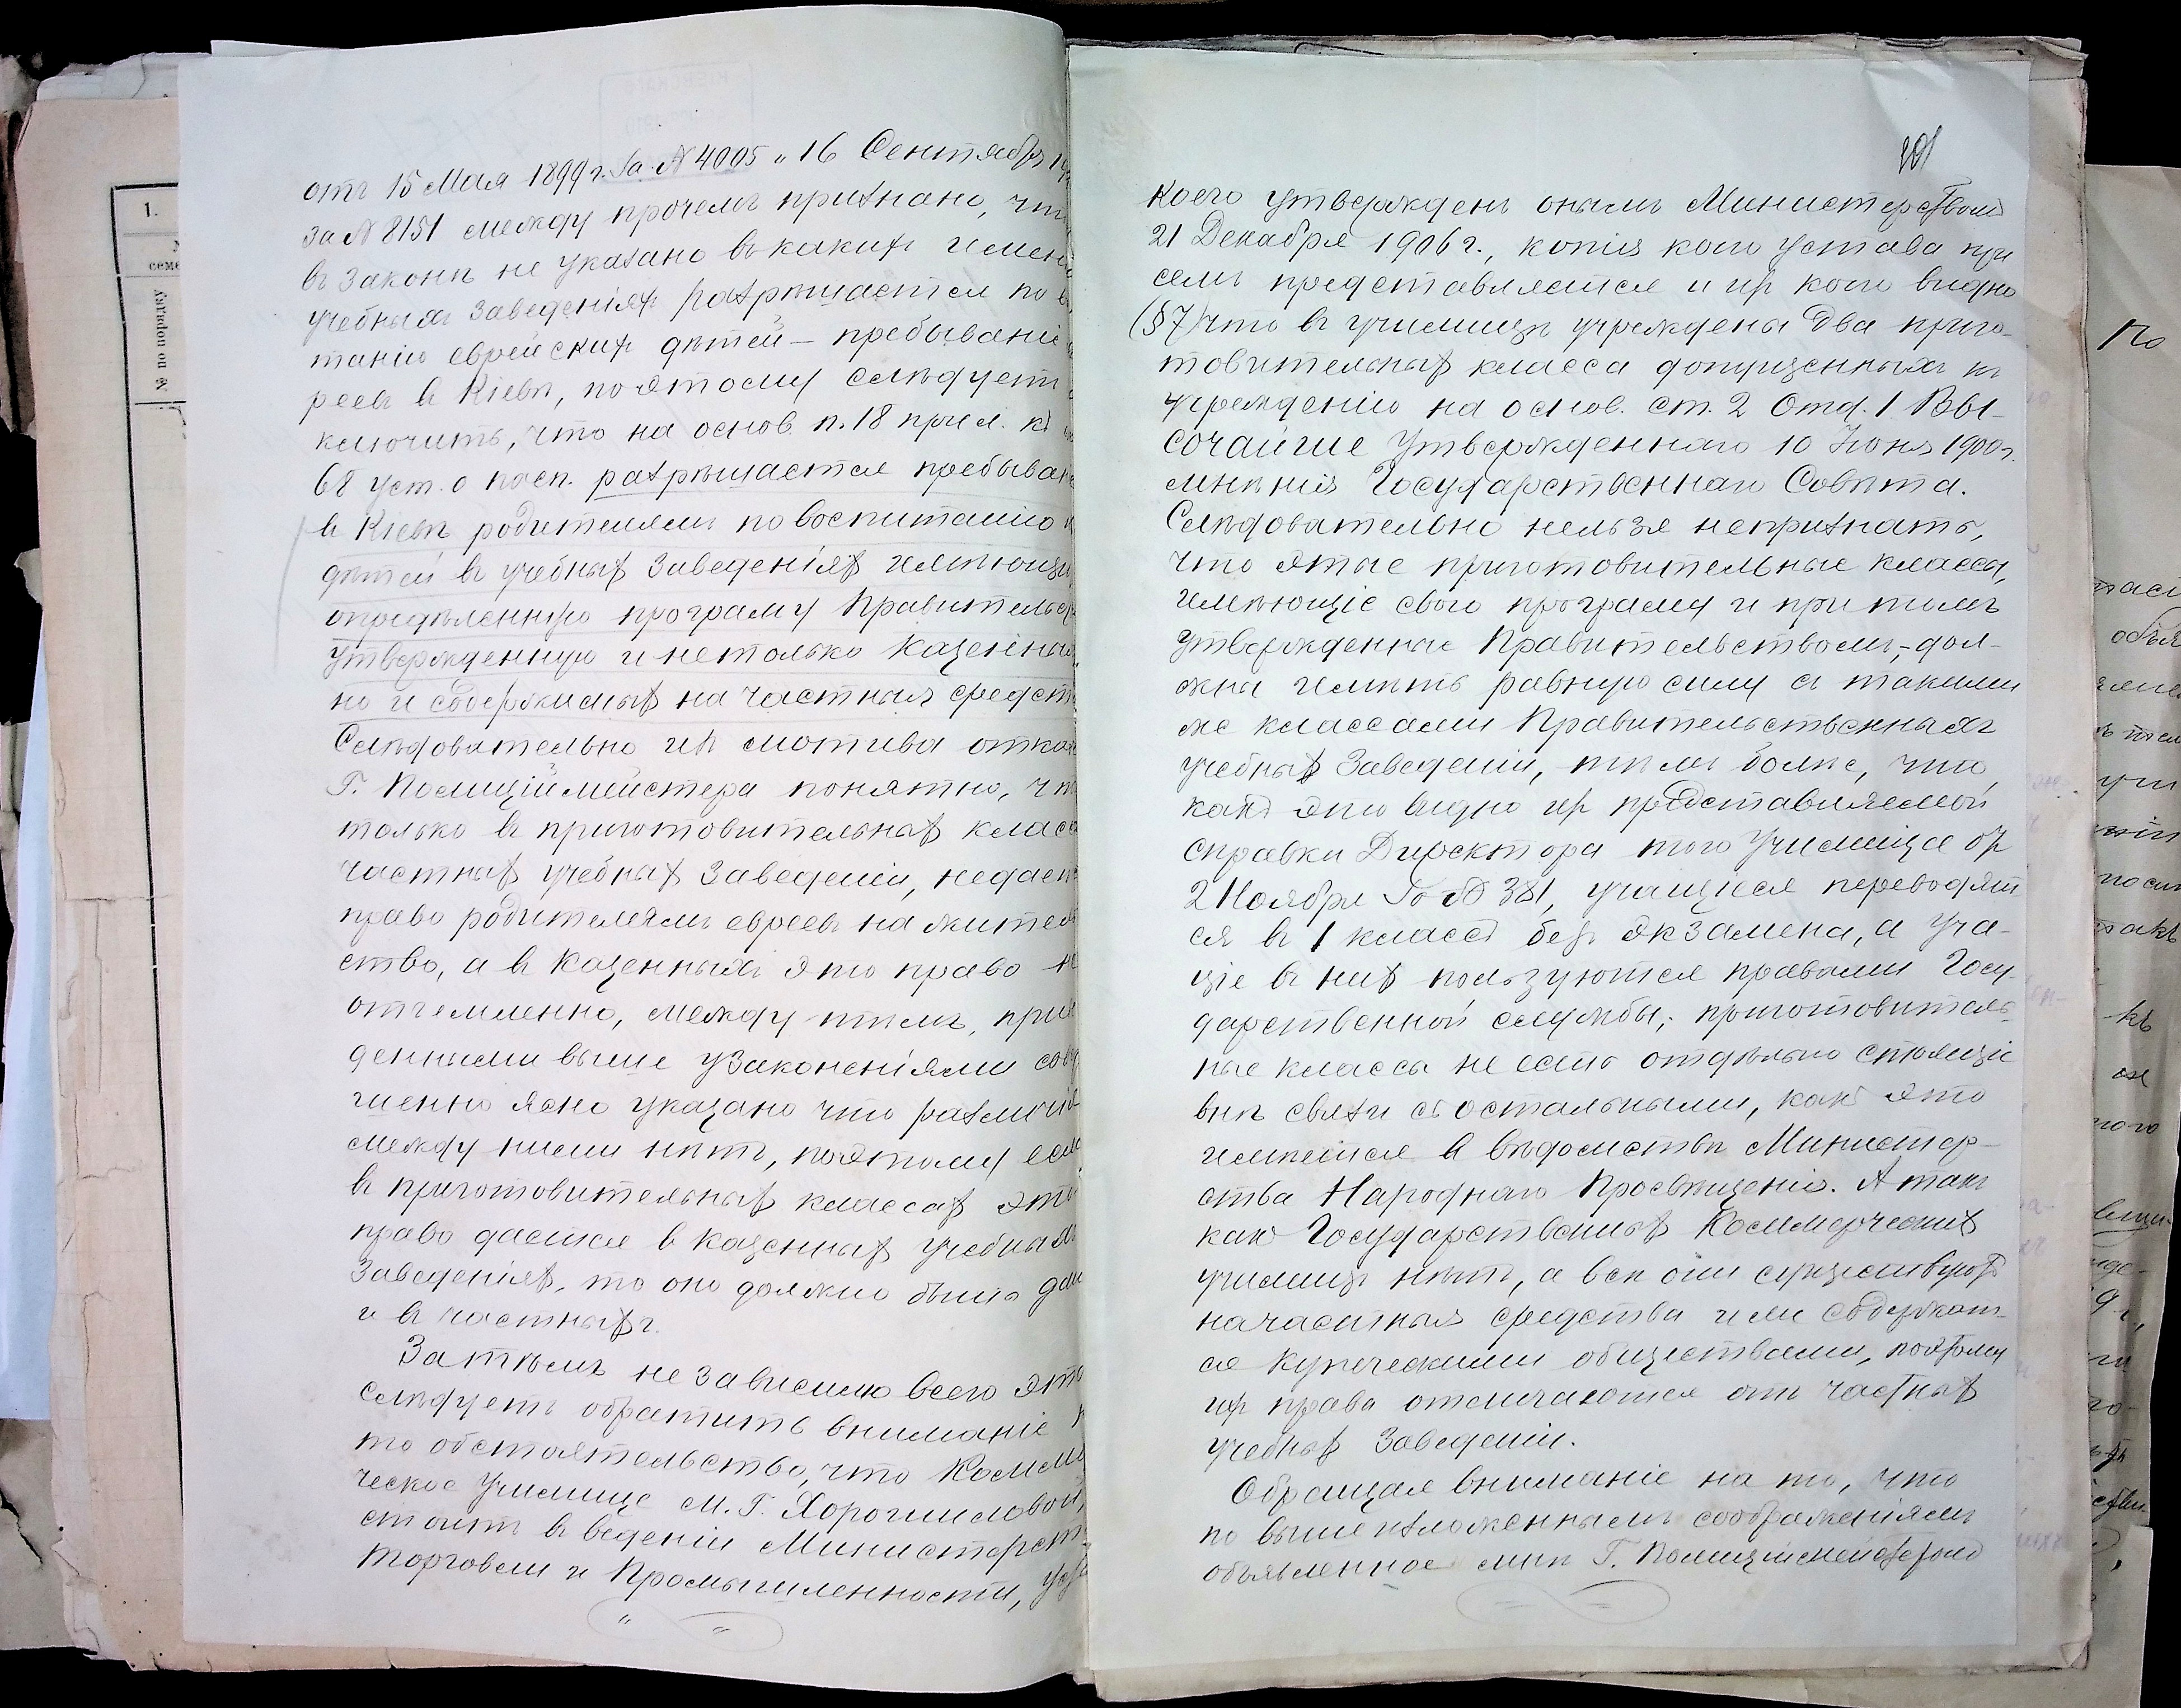 1.
№ по порядку
отъ 15 Мая 1899 г. За № 4005 и 16 Сентября
за № 8151 между прочемъ признано, что
въ законѣ не указано въ какихъ имен
учебныхъ заведеніяхъ разрѣшается по в
танію еврейскихъ дѣтей – пребываніе
реевъ въ Кіевѣ, поэтому слѣдуетъ
ключить, что на основ. п. 18 прил. къ
68 уст. о пасп. разрѣшается пребыван
въ Кіевѣ родителямъ по воспитанію
дѣтей въ учебныхъ заведеніяхъ имѣющи
опредѣленную програму Правительс
утвержденную и нетолько казенны
но и содержимыхъ на частныя средст
Слѣдовательно изъ мотива отка
Г. Полиціймейстера понятно, чт
только въ приготовительныхъ клас
частныхъ учебныхъ заведеній, недает
право родителямъ евреевъ на житель
ство, а въ казенныхъ это право не
отъемлено, между тѣмъ, приве
денными выше узаконеніями сове
шенно ясно указано что различія
между ними нѣтъ, поэтому если
въ приготовительныхъ классахъ это
право дается въ казенныхъ учебныхъ
заведеніяхъ, то оно должно быть дан
и въ частныхъ.
Затѣмъ не зависимо всего это
слѣдуетъ обратить вниманіе н
то обстоятельство, что Комме
ческое Училище М. Г. Хорошиловой,
стоитъ въ веденіи Министерст
Торговли и Промышленности, уст
коего утвержденъ онымъ Министерствомъ
21 Декабря 1906 г., копія коего устава при
семъ представляется и изъ коего видно
(§ 7) что въ училищѣ учреждены два приго-
товительныхъ класса допущенныхъ къ
учрежденію на основ. ст. 2 Отд. 1 Вы-
сочайше утвержденнаго 10 Іюня 1900 г.
мнѣнія Государственнаго Совѣта.
Слѣдовательно нельзя непризнать,
что этые приготовительные классы,
имѣющіе свою програму и притомъ
утвержденные Правительствомъ,-дол-
жны имѣть равную силу съ такими
же классами Правительственныхъ
учебныхъ заведеній, тѣмъ болѣе, что,
какъ это видно изъ представляемой
справки Директора того Училища отъ
2 Ноября За № 381, учащіеся переводят-
ся въ 1 классъ безъ экзамена, а уча-
щіе въ нихъ пользуются правами Госу-
дарственной службы; приготовитель-
ные классы не есть отдѣльно стоящіе
внѣ связи съ остальными, какъ это
имѣется въ вѣдомствѣ Министер-
ства Народнаго Просвѣщенія. А такъ
какъ Государственныхъ Коммерческихъ
училищъ нѣтъ, а всѣ они существуютъ
на частныя средства или содержат-
ся купеческими обществами, поэтому
ихъ права отличаются отъ частныхъ
учебныхъ заведеній.
Обращая вниманіе на то, что
по выше изложеннымъ соображеніямъ
объявленное мнѣ Г. Полиціймейстеромъ
По